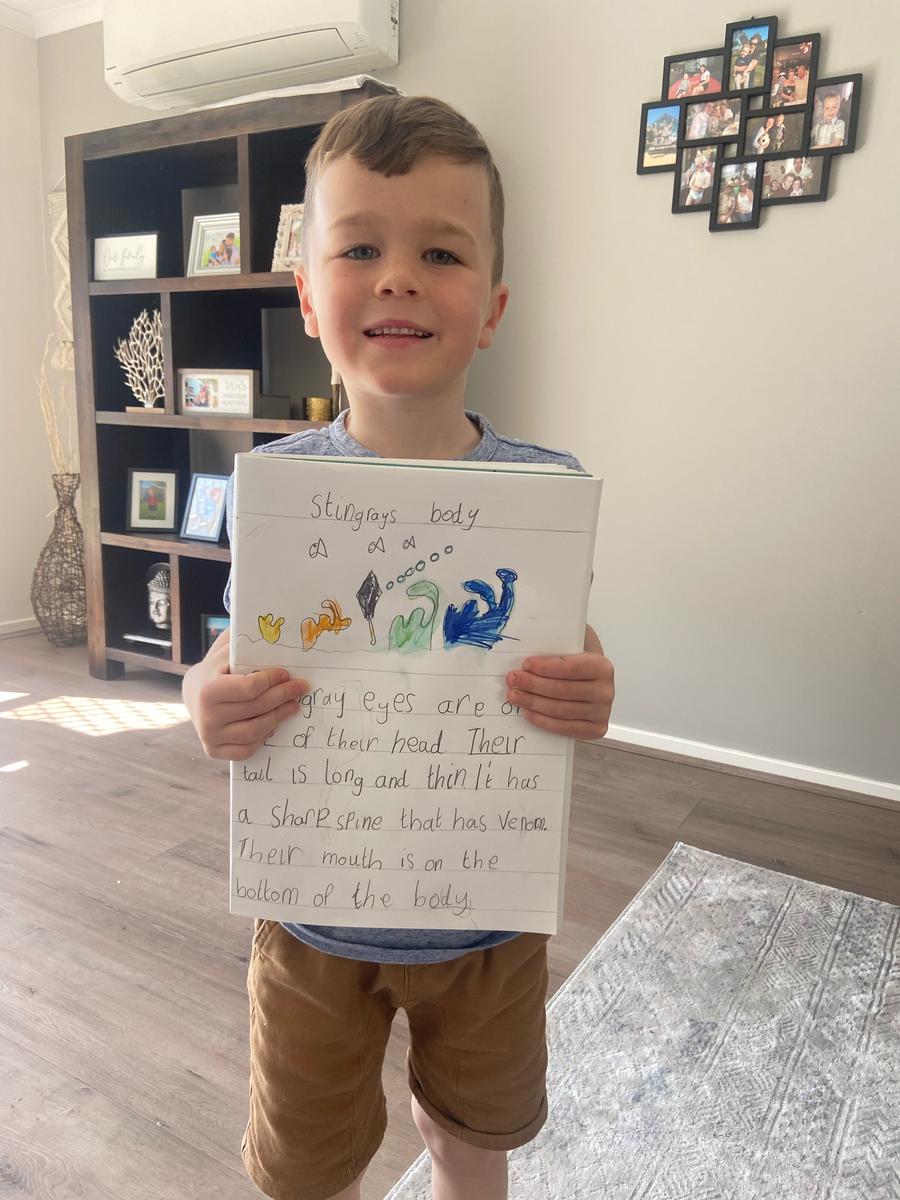 Our family
Stingrays body
eyes are
of their head. Their
tail is long and thin. It has
a sharp spine that has venom.
Their mouth is on the
bottom of the body.